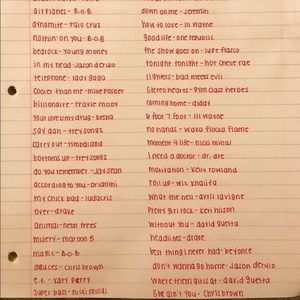 airplanes - B.O.B
dynamite - taio cruz
nothin' on you - B.O.B
bedrock - young money
in my head - Jason derulo
telephone - lady gaga
cooler than me - mike posner
billionaire - travie mccoy
your love is my drug - kesha
say aah - trey songz
carry out - timbaland
bottoms up - trey songz
do you remember - Jay sean
according to you - orianthi
my chick bad - ludacris
over - drake
animal - neon trees
misery - maroon 5
magic - B.O.B
deuces - chris brown
e.t. - katy perry
super bass - nicki minaj
down on me - Jeremih
how to love - lil wayne
good life - one republic
the show goes on - lupe fiasco
tonight tonight - hot chelle rae
lighters - bad meets evil
stereo hearts - gym class heroes
coming home - diddy
6 foot 7 foot - lil wayne
no hands - waka flocka flame
moment 4 life - nicki minaj
I need a doctor - dr. dre
motivation - kelly rowland
roll up - wiz khalifa
what the hell - avril lavigne
pretty girl rock - keri hilson
without you - david guetta
headlines - drake
best thing i never had - beyonce
don't wanna go home - Jason derulo
where them girls at - david guetta
she ain't you - chris brown